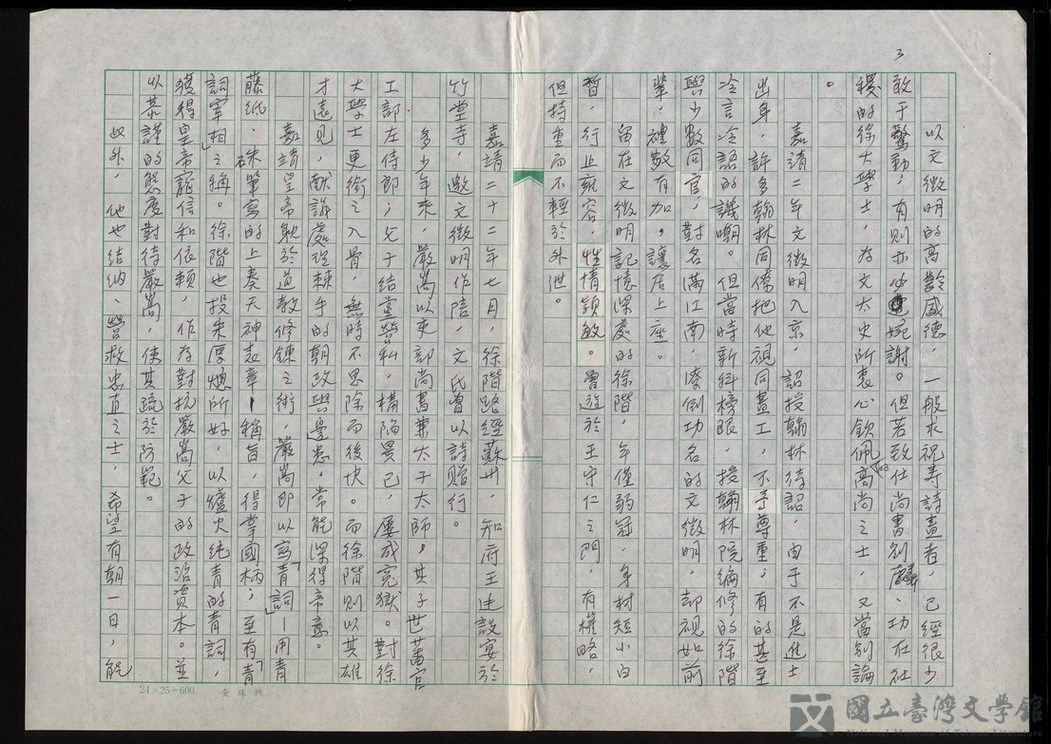 3
以文徵明的高齡盛德，一般求祝壽詩畫者，已經很少
敢于驚動；有則亦必婉謝。但若致仕尚書劉麟、功在社
稷的徐大學士，為文太史所衷心欽佩的高尚之士，又當別論
。
嘉靖二年文徵明入京，詔授翰林待詔，由于不是進士
出身，許多翰林同僚把他視同畫工，不予尊重；有的甚至
冷言冷語的譏嘲。但當時新科榜眼，授翰林院編修的徐階
與少數同官，對名滿江南，潦倒功名的文徵明，却視如前
輩，禮敬有加，讓居上座。
留在文徵明記憶深處的徐階，年僅弱冠，身材短小白
皙，行止雍容，性情穎敏。曾遊於王守仁之門，有權略，
但持重而不輕於外泄。
嘉靖二十二年七月，徐階路經蘇州，知府王廷設宴於
竹堂寺，邀文徵明作陪，文氏曾以詩贈行。
多少年來，嚴嵩以吏部尚書兼太子太師，其子世蕃官
工部左侍郎；父子結黨營私，構陷異己，屢成冤獄。對徐
大學士更銜之入骨，無時不思除而後快。而徐階則以其雄
才遠見，献議處理棘手的朝政與邊患，常能深得帝意。
嘉靖皇帝耽於道教修鍊之術，嚴嵩即以寫「青詞」—用青
藤紙，硃筆寫的上奏天神表章—稱旨，得掌國柄；至有「青
詞宰相」之稱。徐階也投朱厚熜所好，以爐火純青的青詞，
獲得皇帝寵信和依賴，作為對抗嚴嵩父子的政治資本。並
以恭謹的態度對待嚴嵩，使其疏於防範。
此外，他也結納、營救忠直之士，希望有朝一日，能
24×25=600
國立臺灣文學館
National Museum of Taiwan Literature